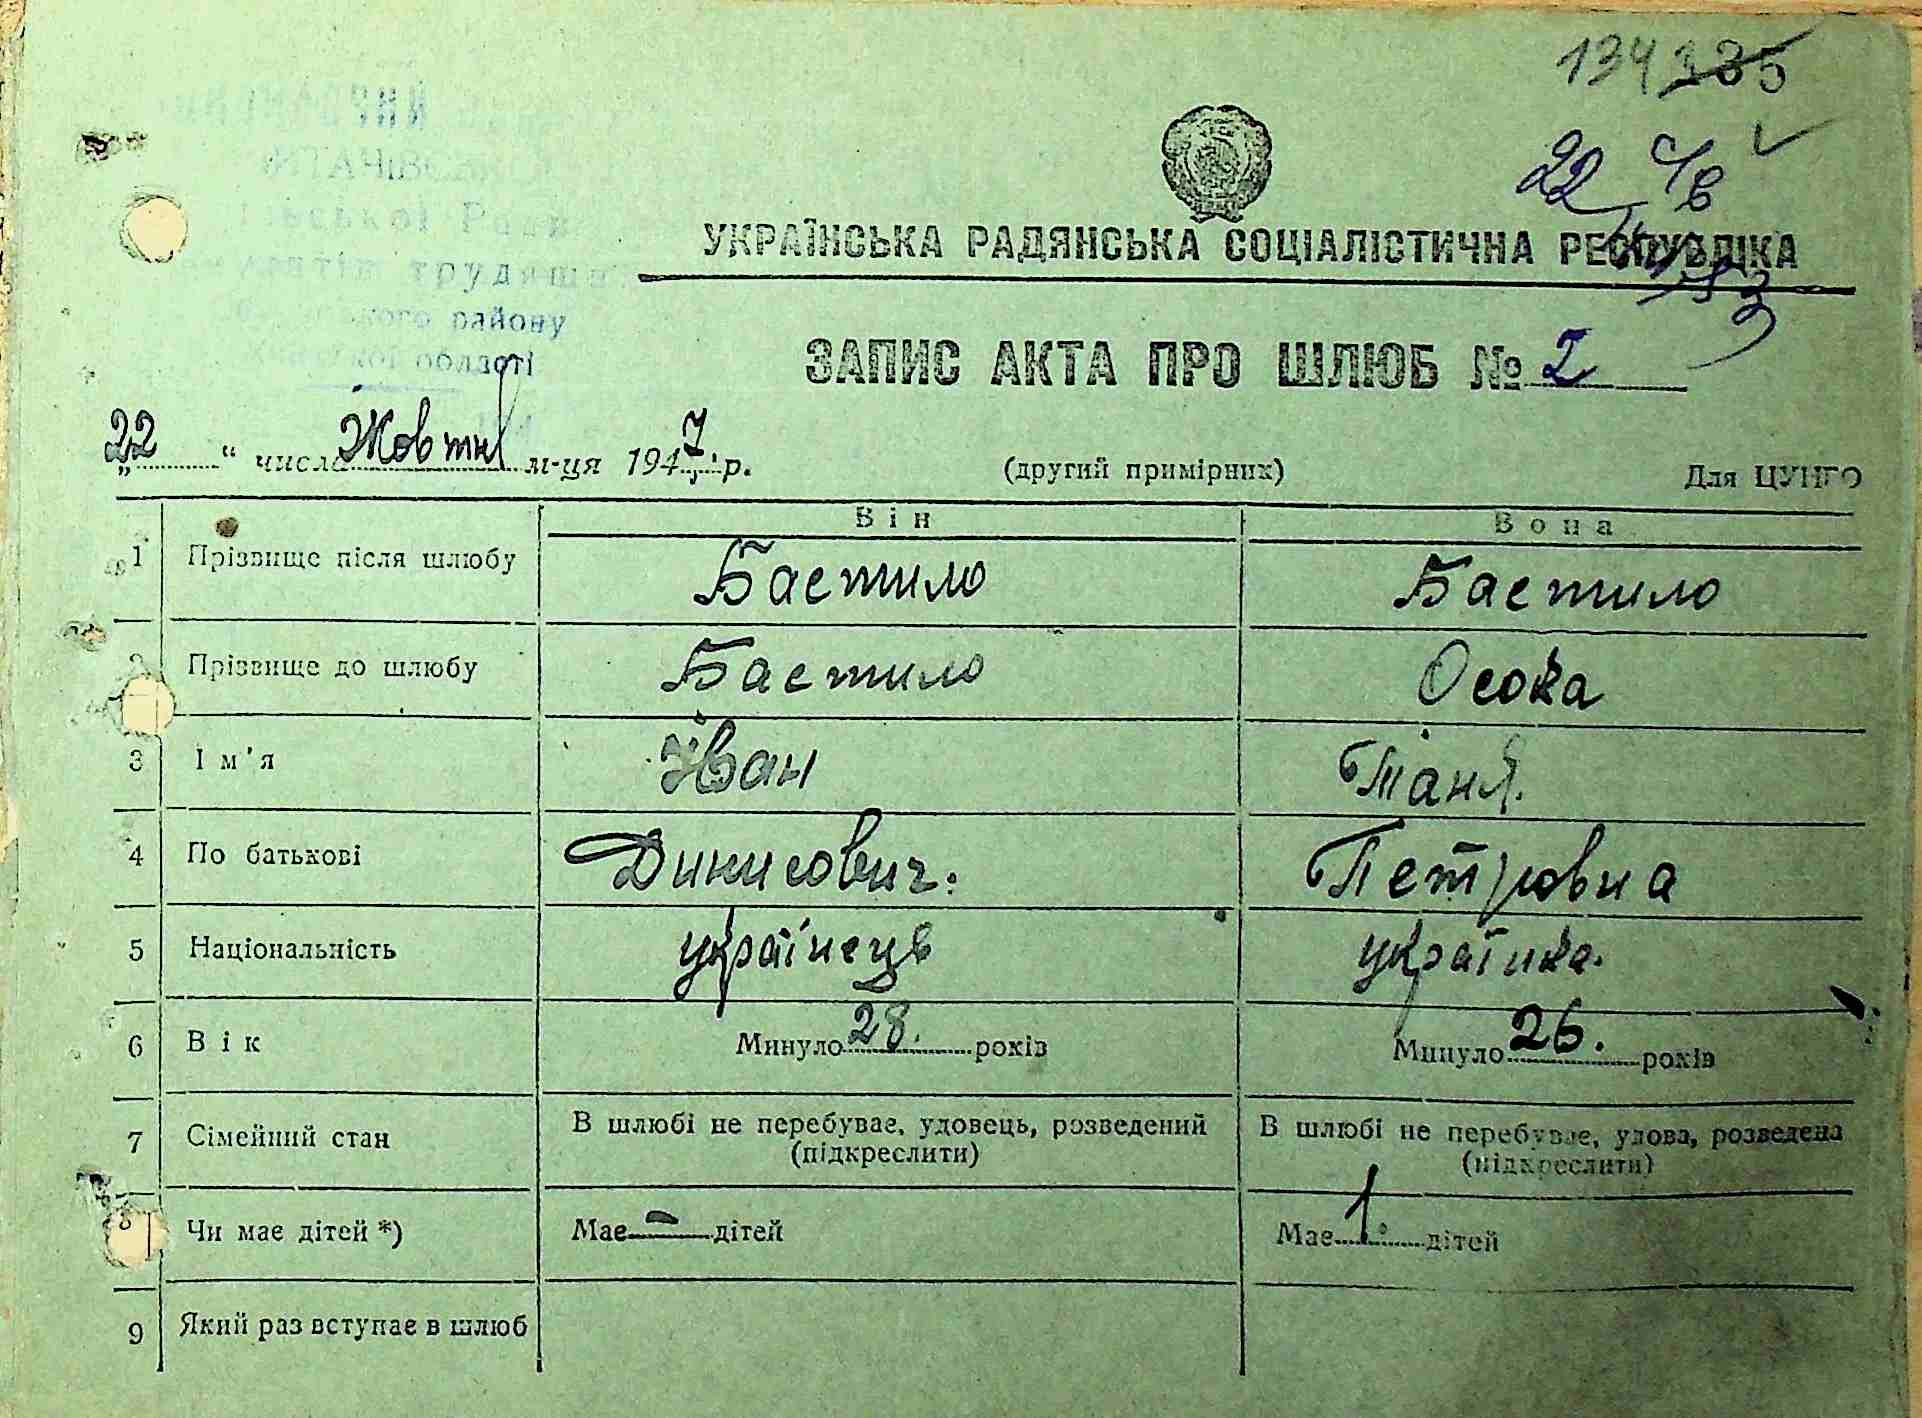 134 335
22
УКРАЇНСЬКА РАДЯНСЬКА СОЦІАЛІСТИЧНА РЕСПУБЛІКА
трудящ
району
області
ЗАПИС АКТА ПРО ШЛЮБ № 2
„22“ числа Жовтня м-ця 1947 р.
(другий примірник)
Для ЦУНГО
Він Вона
1 Прізвище після шлюбу Бастило Бастило
2 Прізвище до шлюбу Бастило Осока
3 Ім'я Іван Таня.
4 По батькові Динисович. Петровна
5 Національність українець українка.
6 Вік Минуло 28. років Минуло 26. років
7 Сімейний стан В шлюбі не перебуває, удовець, розведений В шлюбі не перебуває, удова, розведена
(підкреслити) (підкреслити)
8 Чи має дітей *) Має — дітей Має 1. дітей
9 Який раз вступає в шлюб